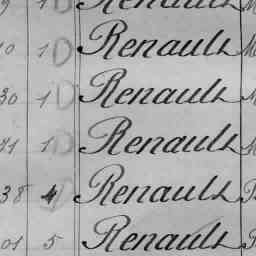 1 D Renault
10 1 D Renault
30 1 D Renault
71 1 D Renault
38 4 Renault
01 5 Renault